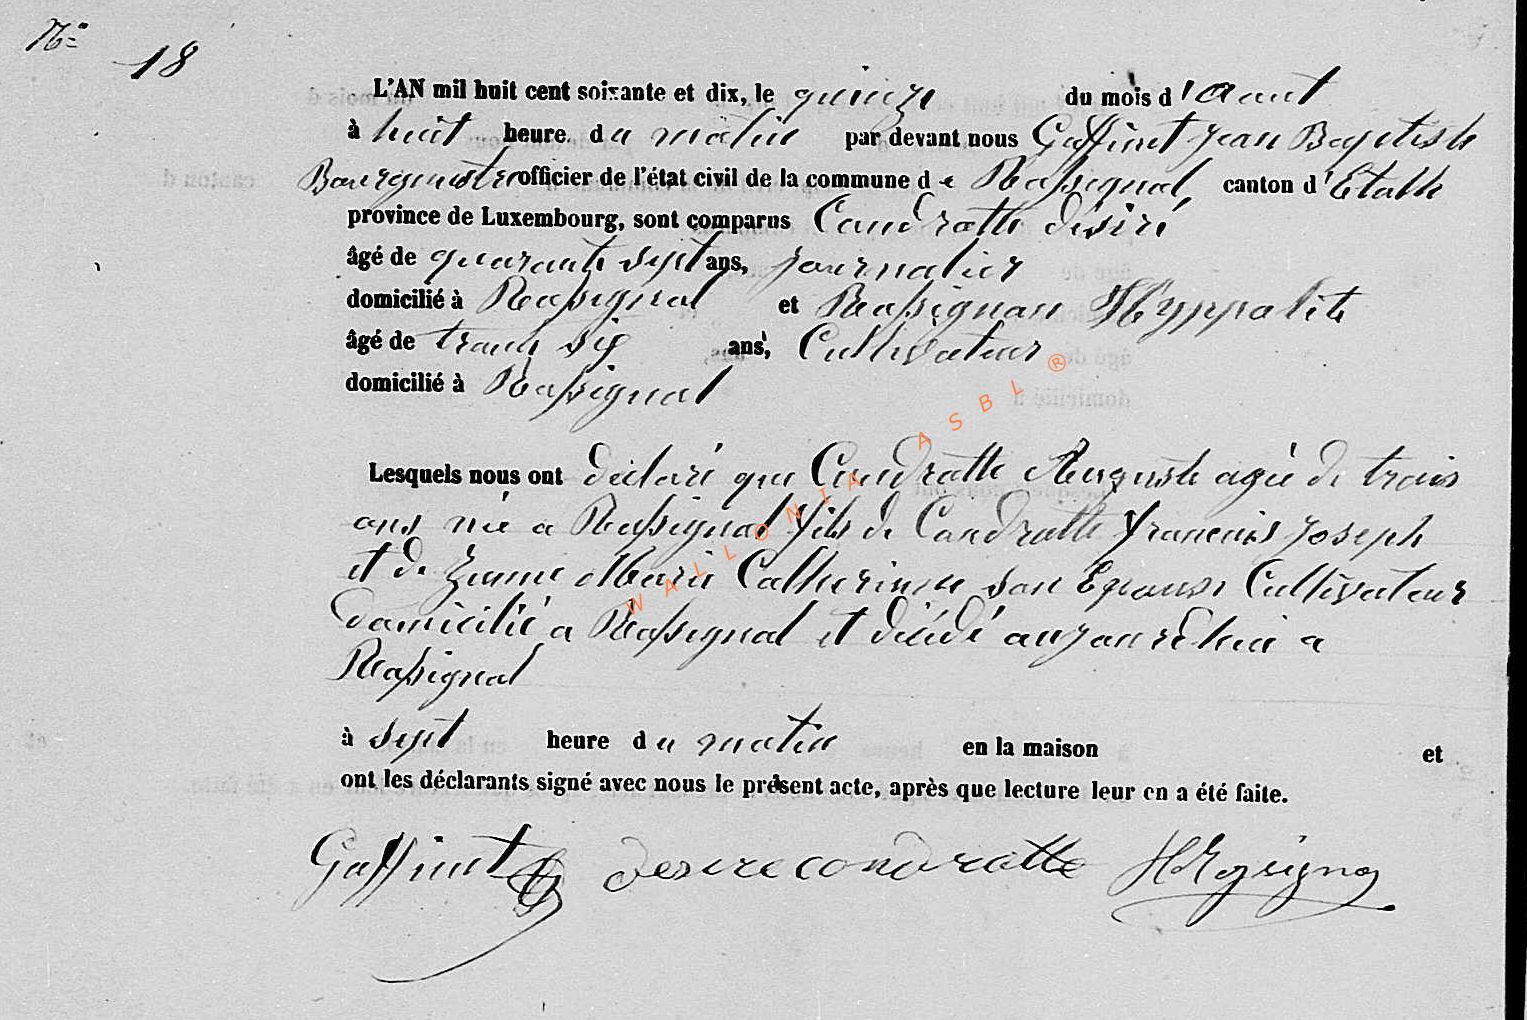 No
18
L'AN mil huit cent soixante et dix, le quinze du mois d'Aout
à huit heure du matin par devant nous Gaffinet Jean Baptiste
Bourgmestre officier de l'état civil de la commune de Rossignol, canton d'Etalle
province de Luxembourg, sont comparus Condrotte désiré
âgé de quarante sept ans, journalier
domicilié à Rossignol et Rossignon Hyppolite
âgé de trente six ans, Cultivateur
domicilié à Rossignol
Lesquels nous ont déclaré que Condrotte Auguste agé de trois
ans né a Rossignol fils de Condrotte françois Joseph
et de Marie Catherine son Epouse Cultivateur
domicilié a Rossignol et décédé aujourd'hui a
Rossignol
à sept heure du matin en la maison et
ont les déclarants signé avec nous le présent acte, après que lecture leur en a été faite.
Gaffinet desire condrotte
WALLONIA ASBL ®